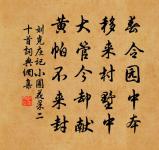 园中
移来村墅中
大管今却献
黄帕不来封
刘克庄记小圃花果二
十首词典网集